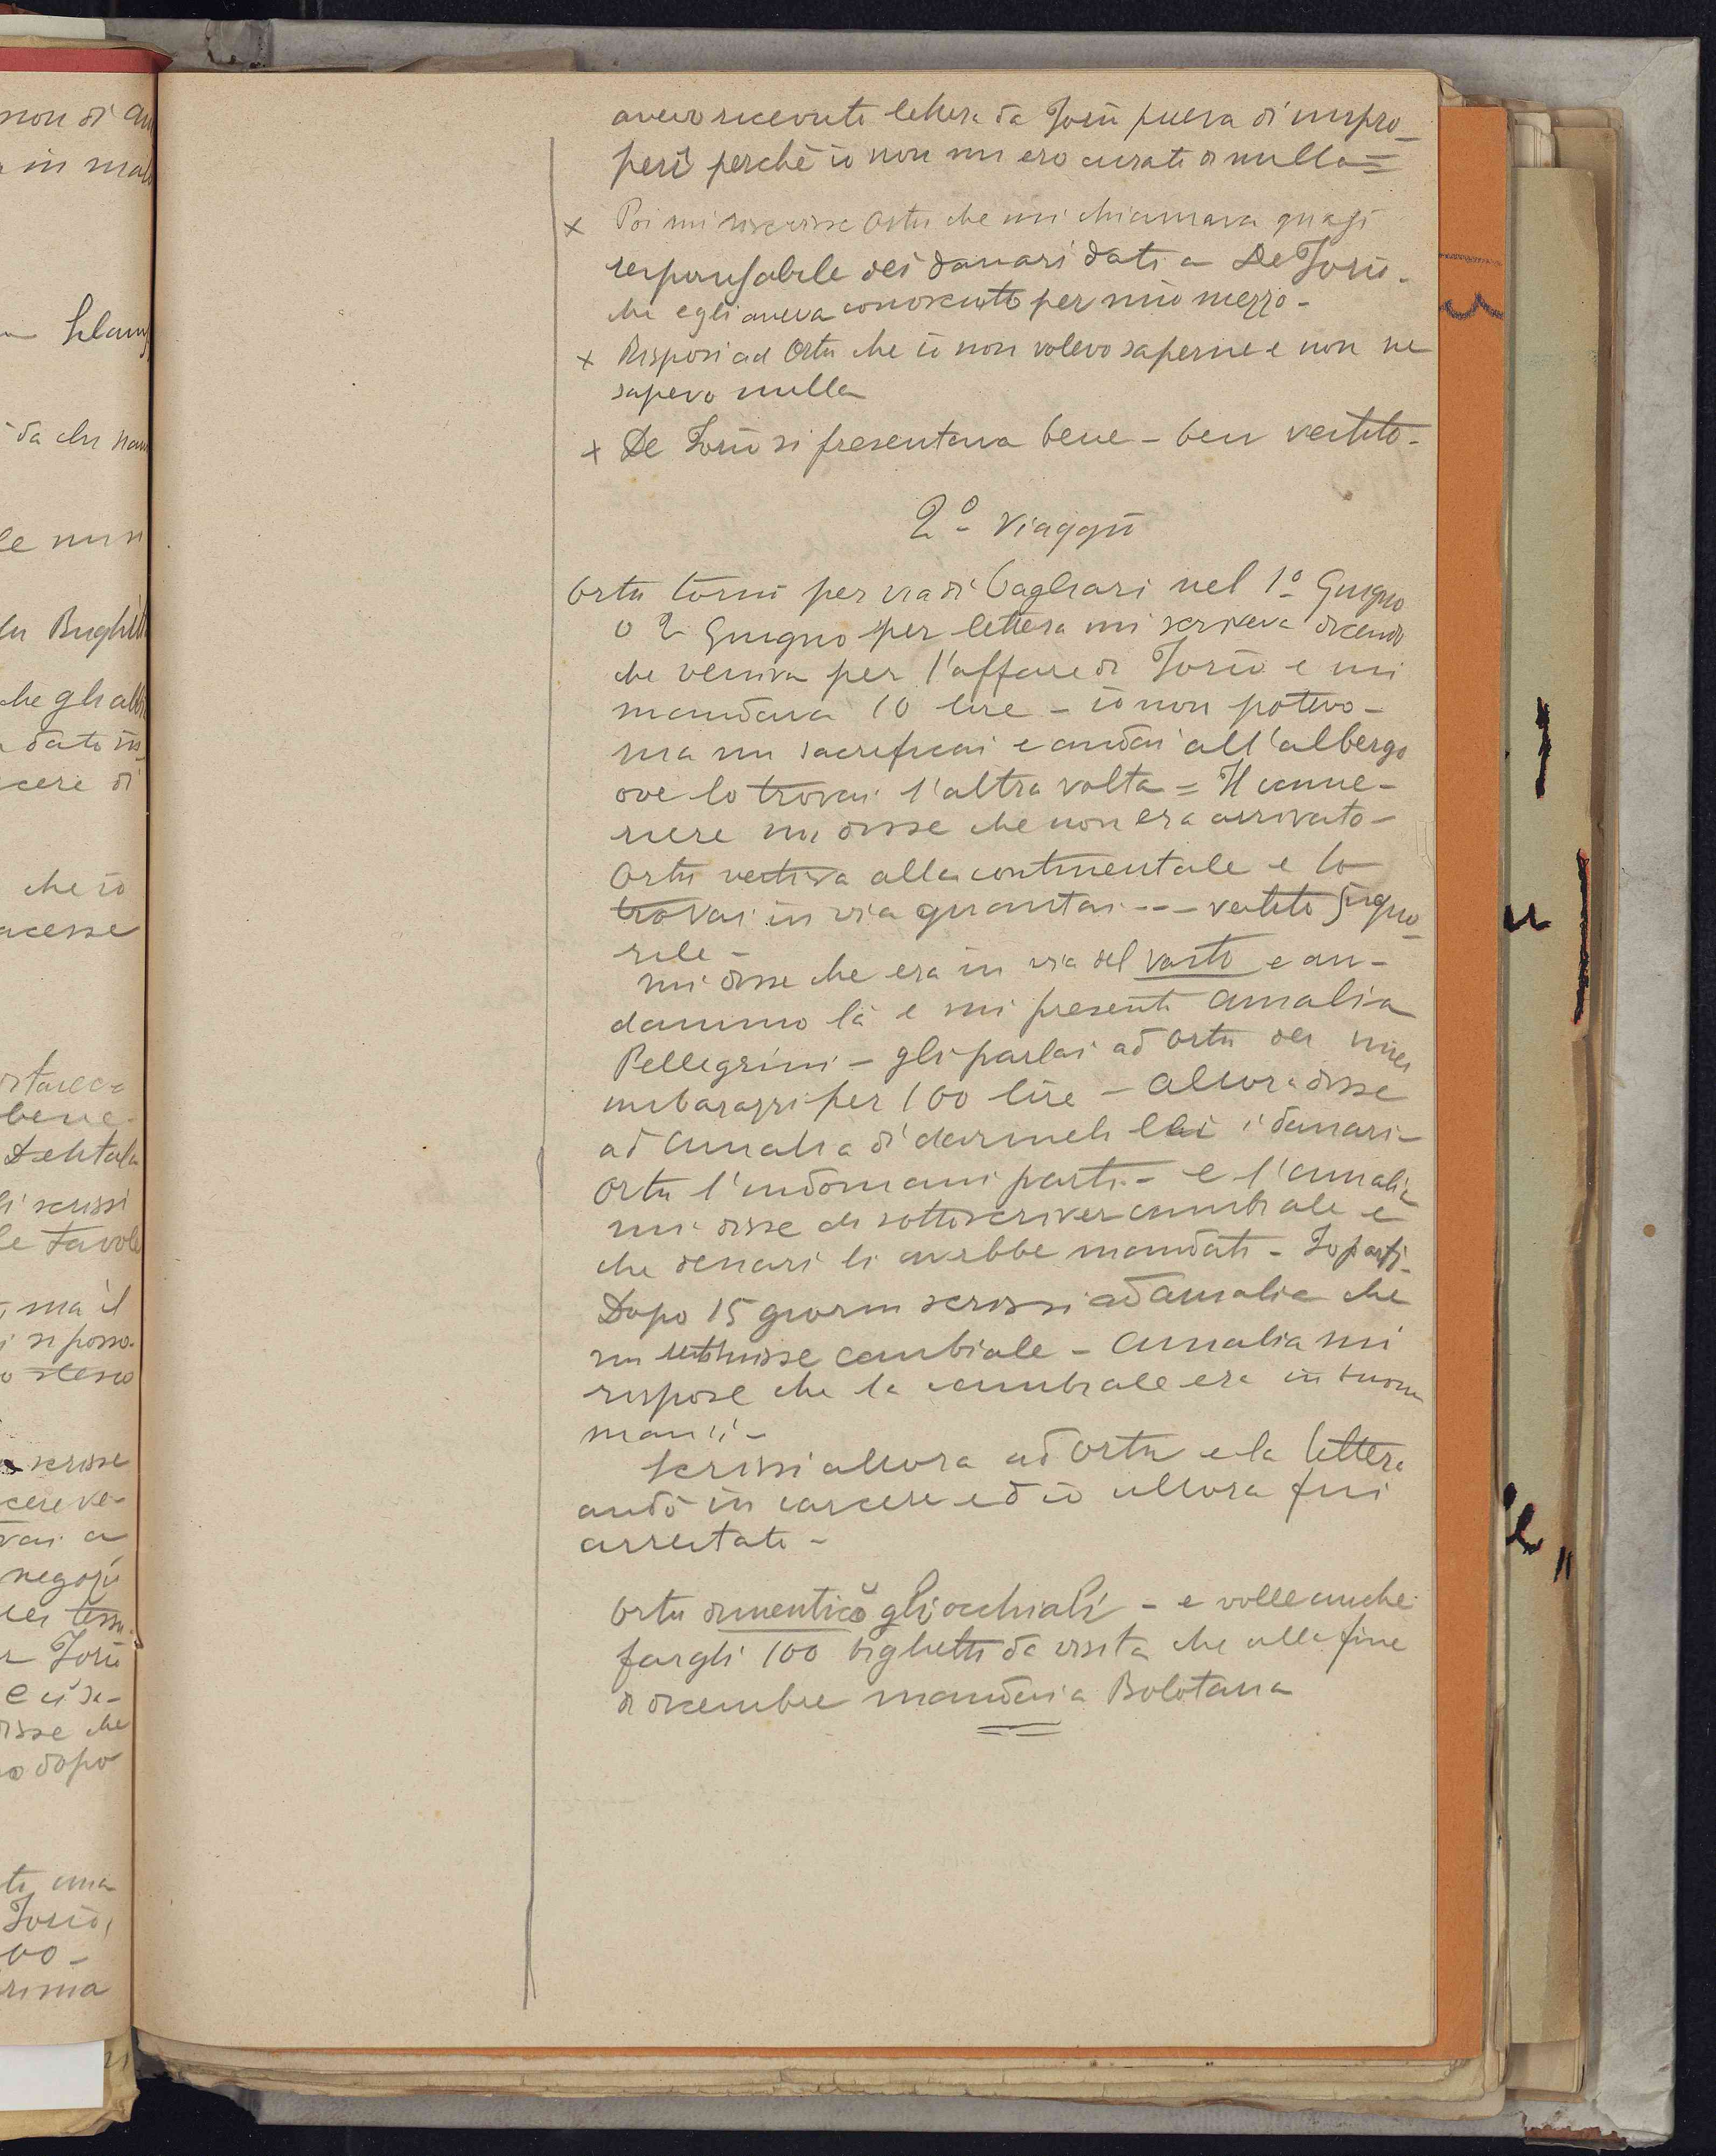 non di an
in mal
da chi nam
Bughitt
che gli abb
dato in
cere di
che io
acesse
bene-
li scrissi
le tavole
, ma il
i si posso-
o stesso
scrisse
cere ve-
vai a
negozi
Jorio
e ci sa-
disse che
dopo
una
Jorio,
00-
rima
avevo ricevuto lettera da Jorio piena di impro-
peri perchè io non mi ero curato di nulla =
x Poi mi riscrisse Ortu che mi chiamava quasi
responsabile dei danari dati a De Jorio-
che egli aveva conosciuto per mio mezzo-
x Risposi ad Ortu che io non volevo saperne e non ne
sapevo nulla
x De Jorio si presentava bene - ben vestito-
2º Viaggio
Ortu tornò per via di Cagliari nel 1º Giugno
o 2 Giugno per lettera mi scriveva dicendo
che veniva per l'affare di Jorio e mi
mandava 10 lire - io non potevo-
ma mi sacrificai e andai all'albergo
ove lo trovai l'altra volta = Il came-
riere mi disse che non era arrivato-
Ortu vestiva alla continentale e lo
trovai in via Guantai --- vestito Signo-
rile-
mi disse che era in via del Vasto e an-
dammo là e mi presentò Amalia
Pellegrini - gli parlai ad Ortu dei miei
imbarazzi per 100 lire - Allora disse
ad Amalia di darmeli lei i danari-
Ortu l'indomani partì - e l'Amalia
mi disse di sottoscriver cambiale e
che denari li avrebbe mandati - Io partii-
Dopo 15 giorni scrissi ad Amalia che
mi restituisse cambiale - Amalia mi
rispose che la cambiale era in buone
mani-
Scrissi allora ad Ortu e la lettera
andò in carcere ed io allora fui
arrestato-
Ortu dimenticò gli occhiali - e volle anche
fargli 100 biglietti da visita che alla fine
di dicembre mandai a Bolotana